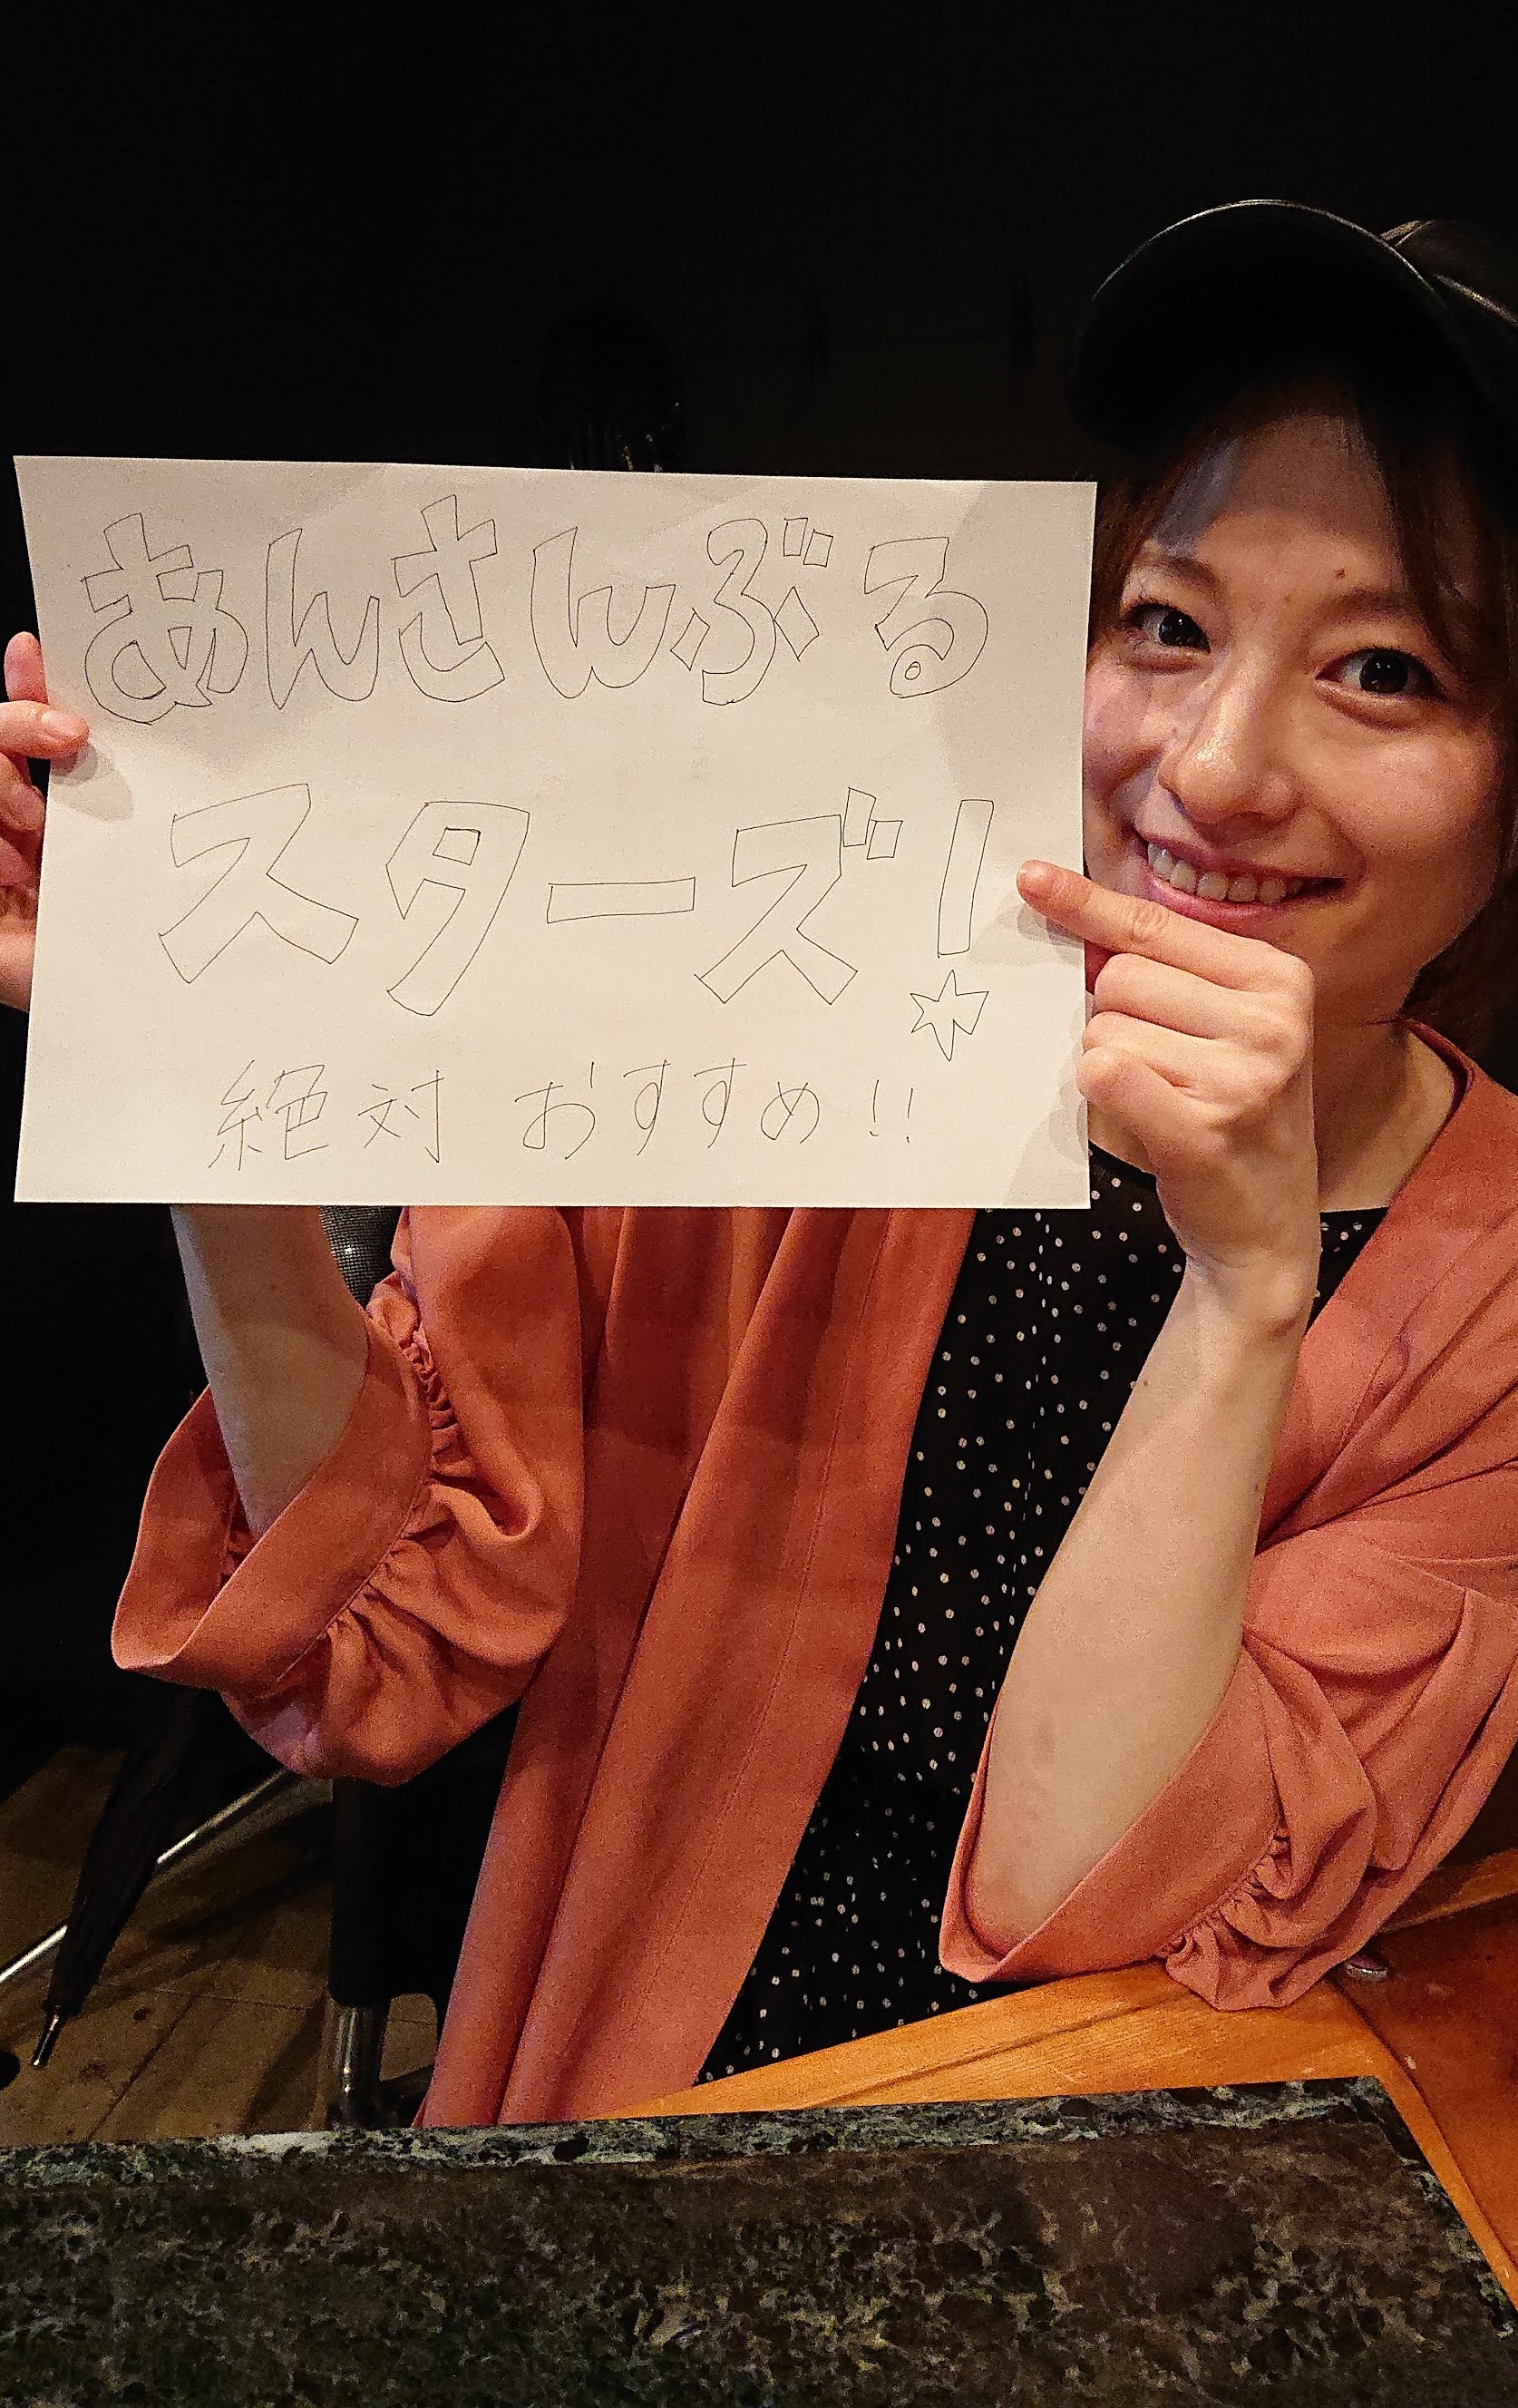 あんさんぶる
スターズ!
絶対 おすすめ!!